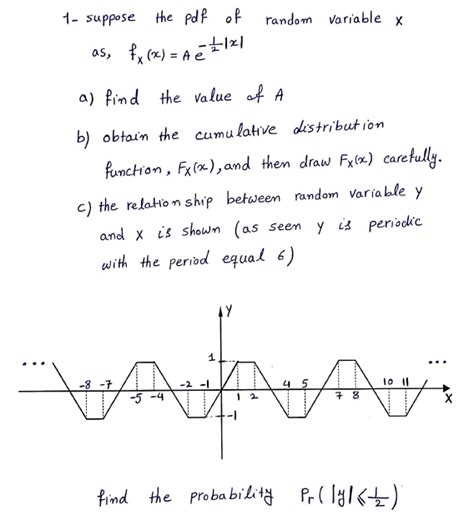 1- suppose the pdf of random variable x
as, fx(x) = A e^-1/2|x|
a) find the value of A
b) obtain the cumulative distribution
function, Fx(x), and then draw Fx(x) carefully.
c) the relationship between random variable y
and x is shown (as seen y is periodic
with the period equal 6)
Y
1
... -8 -7 -5 -4 -2 -1 1 2 4 5 7 8 10 11 ...
X
-1
find the probability Pr(|y| ≤ 1/2)